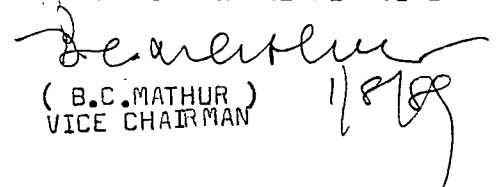 ( B.C.MATHUR )
VICE CHAIRMAN
1/8/89